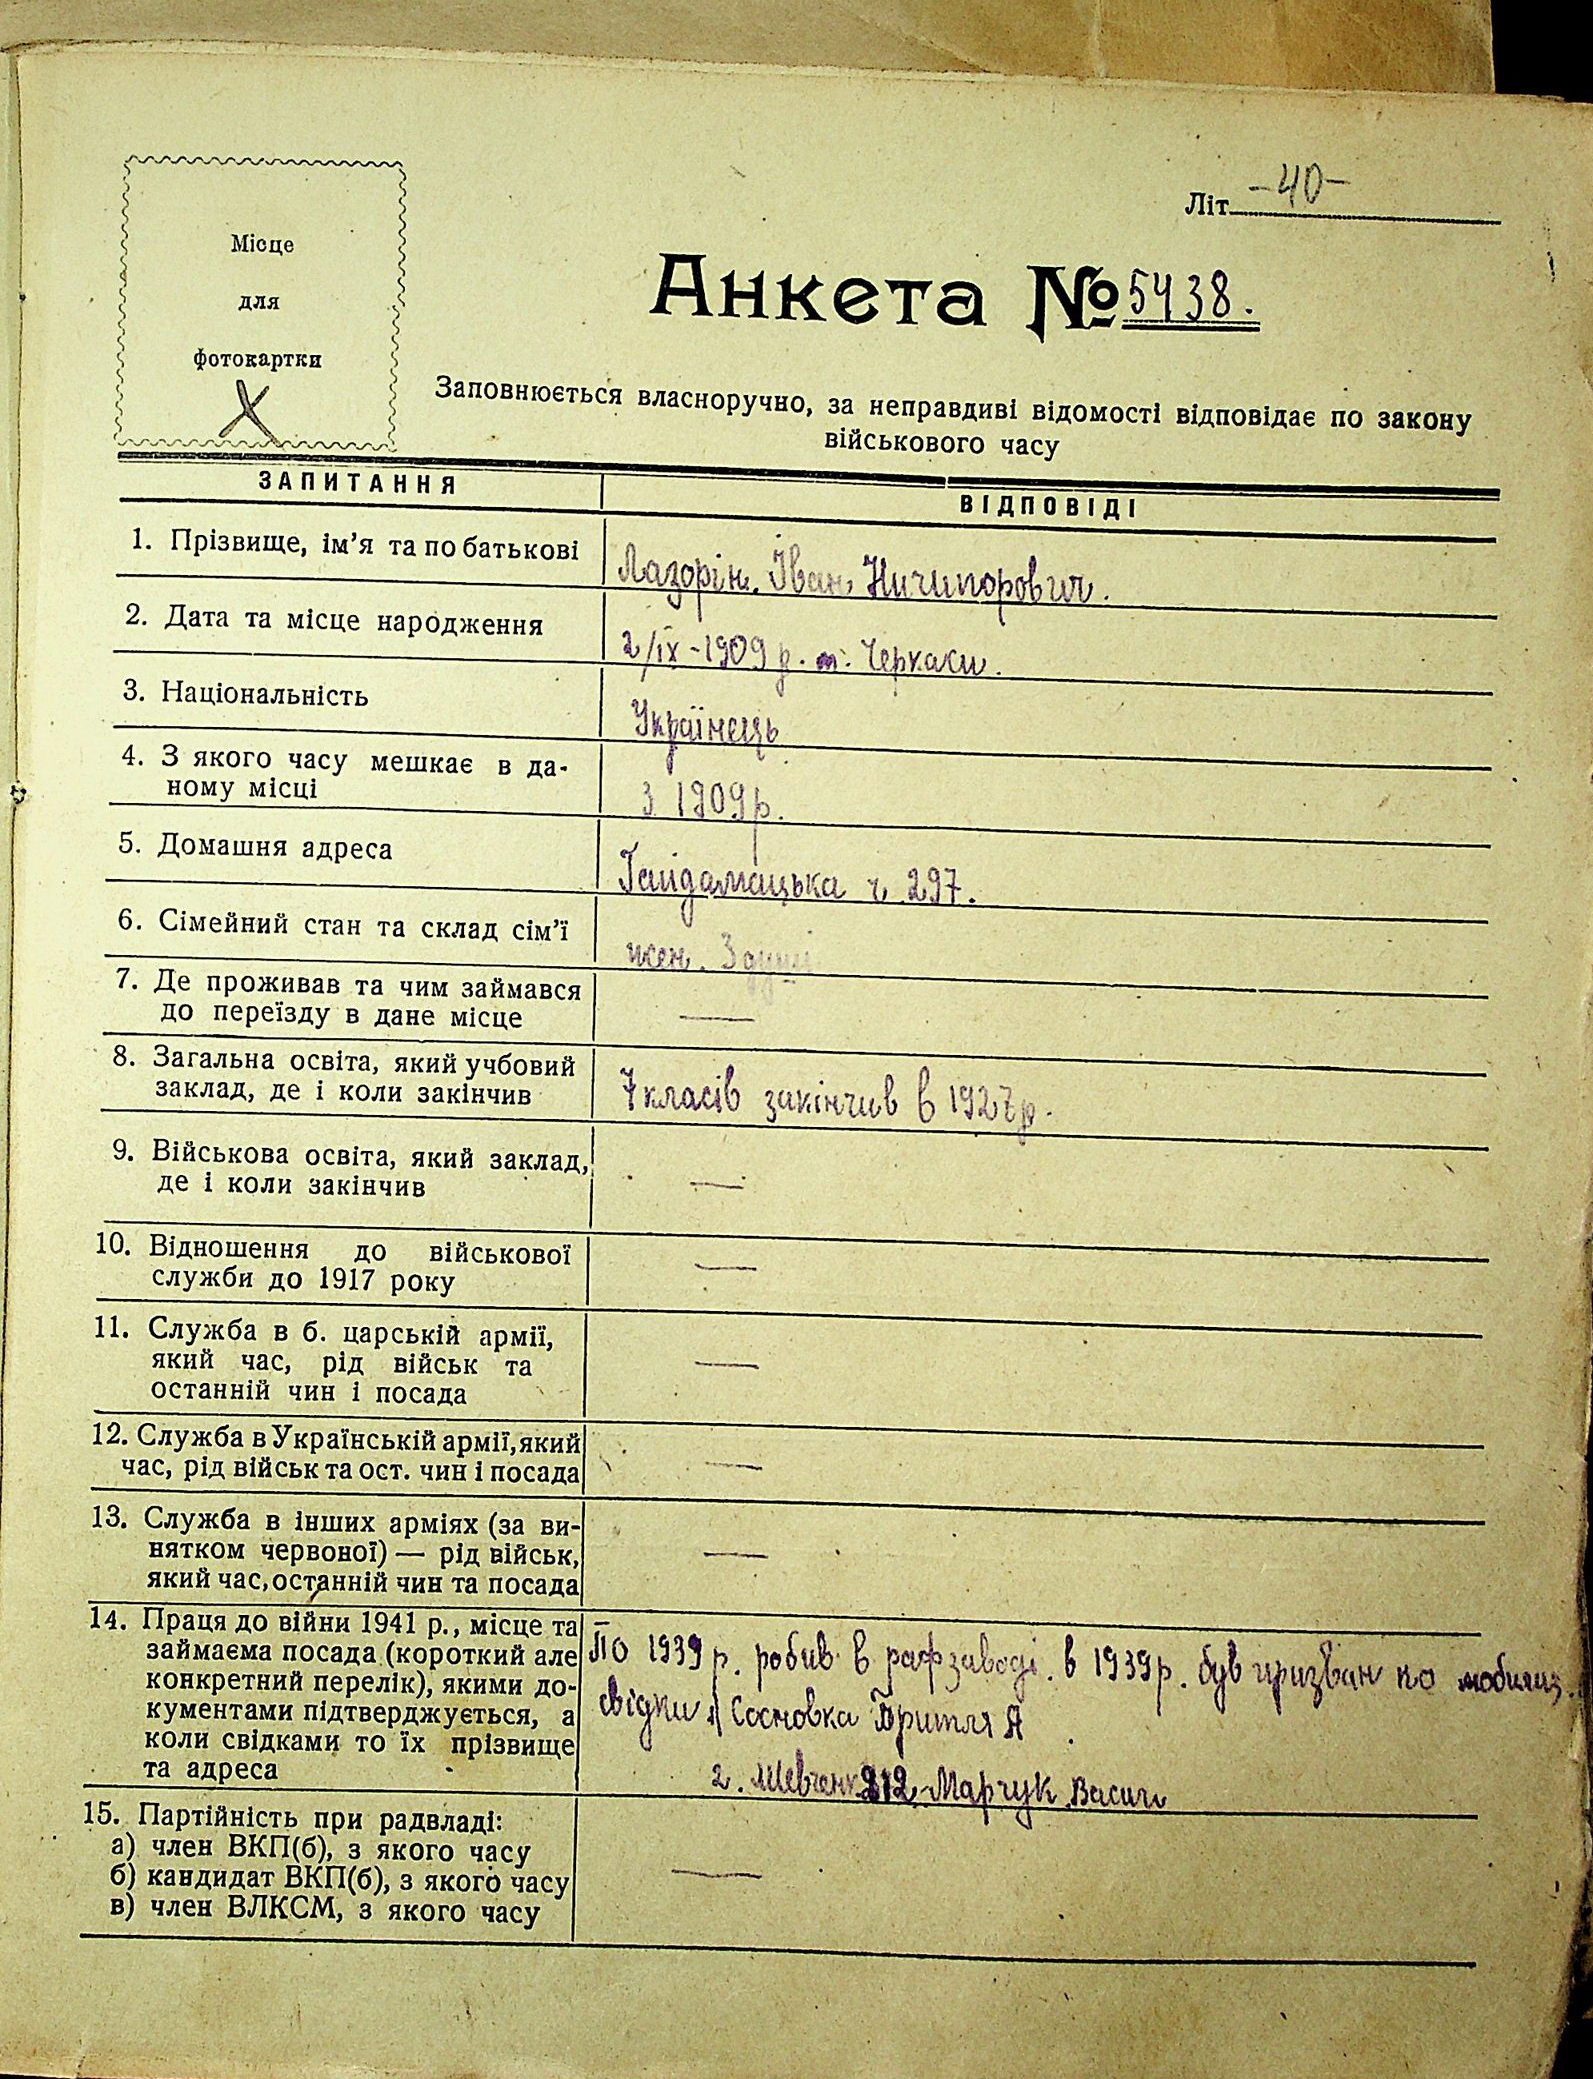 Місце
для
фотокартки
Літ. -40-
Анкета № 5438.
Заповнюється власноручно, за неправдиві відомості відповідає по закону
військового часу
ЗАПИТАННЯ ВІДПОВІДІ
1. Прізвище, ім'я та по батькові Лазорін. Іван Ничипорович.
2. Дата та місце народження 2/ІХ-1909 р. м. Черкаси.
3. Національність Українець
4. З якого часу мешкає в да-
ному місці з 1909 р.
5. Домашня адреса Гайдамацька ч. 297.
6. Сімейний стан та склад сім'ї жен. 3 душі
7. Де проживав та чим займався
до переїзду в дане місце —
8. Загальна освіта, який учбовий
заклад, де і коли закінчив 7 класів закінчив в 1927 р.
9. Військова освіта, який заклад,
де і коли закінчив —
10. Відношення до військової
служби до 1917 року —
11. Служба в б. царській армії,
який час, рід військ та
останній чин і посада —
12. Служба в Українській армії, який
час, рід військ та ост. чин і посада —
13. Служба в інших арміях (за ви-
нятком червоної) — рід військ,
який час, останній чин та посада —
14. Праця до війни 1941 р., місце та
займаєма посада (короткий але
конкретний перелік), якими до-
кументами підтверджується, а
коли свідками то їх прізвище
та адреса
По 1939 р. робив в рафзаводі. в 1939 р. був призван по мобилиз.
свідки 1 Сосновка Притля Я
2. Шевченк 212 Марчук Васил
15. Партійність при радвладі:
а) член ВКП(б), з якого часу
б) кандидат ВКП(б), з якого часу —
в) член ВЛКСМ, з якого часу